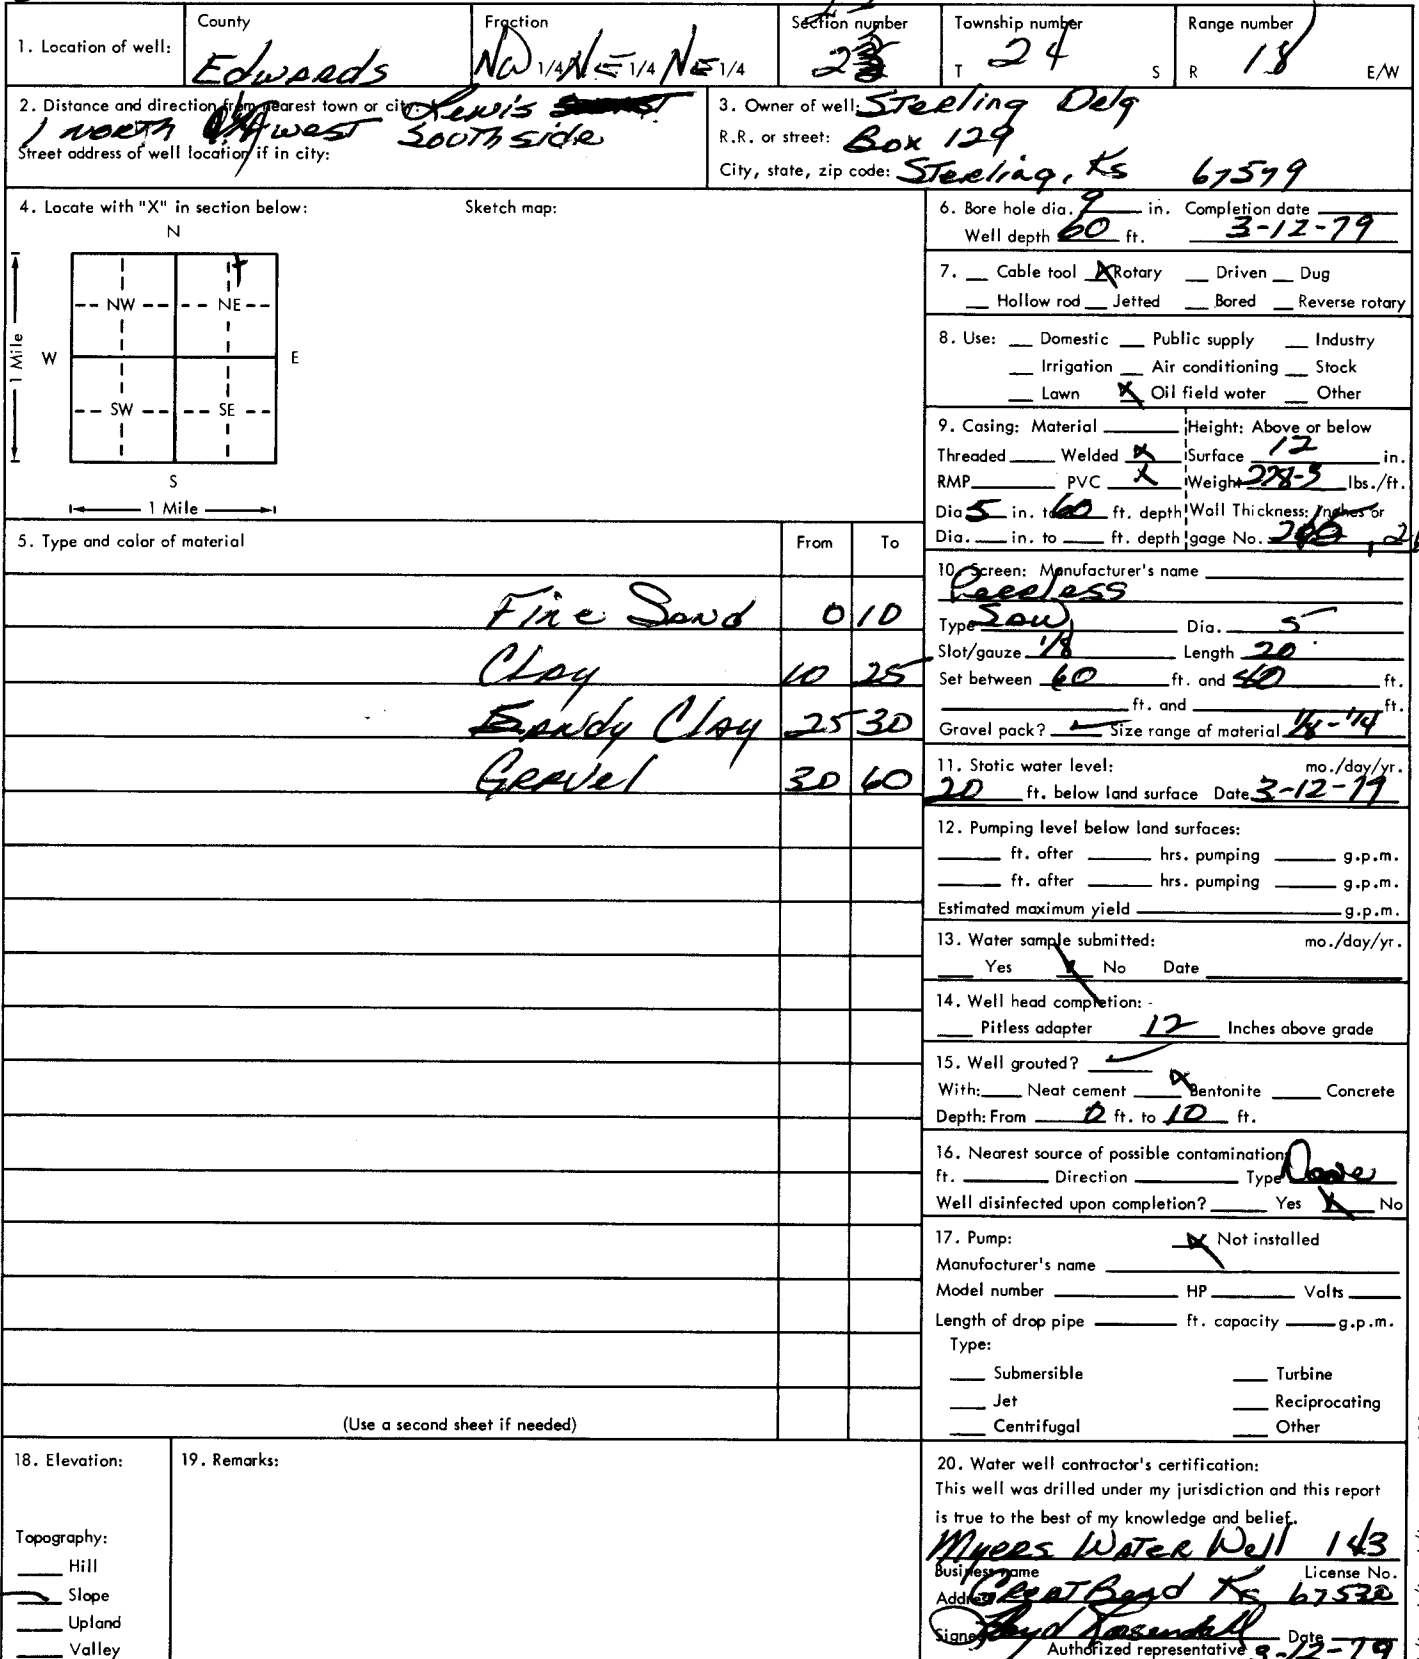 1. Location of well:
County
Edwards
Fraction
NW 1/4 NE 1/4 NE 1/4
Section number
Township number
T 24 S
Range number
R 18 E/W
2. Distance and direction from nearest town or city: Lewis
1 north west South side
Street address of well location if in city:
3. Owner of well: Sterling Delg
R.R. or street: Box 129
City, state, zip code: Sterling, Ks 67579
4. Locate with "X" in section below:
Sketch map:
N
NW NE
1 Mile
W E
SW SE
S
1 Mile
5. Type and color of material From To
Fine Sand 0 10
Clay 10 25
Sandy Clay 25 30
Gravel 30 60
(Use a second sheet if needed)
6. Bore hole dia. 9 in. Completion date
Well depth 60 ft. 3-12-79
7. __ Cable tool X Rotary __ Driven __ Dug
__ Hollow rod __ Jetted __ Bored __ Reverse rotary
8. Use: __ Domestic __ Public supply __ Industry
__ Irrigation __ Air conditioning __ Stock
__ Lawn X Oil field water __ Other
9. Casing: Material ____ Height: Above or below
Threaded ____ Welded X Surface 12 in.
RMP ____ PVC X Weight lbs./ft.
Dia 5 in. to 60 ft. depth Wall Thickness: Inches or
Dia. __ in. to __ ft. depth gage No.
10. Screen: Manufacturer's name
Peerless
Type Saw Dia. 5
Slot/gauze 1/8 Length 20
Set between 60 ft. and 40 ft.
____ ft. and ____ ft.
Gravel pack? ✓ Size range of material 1/8-1/4
11. Static water level: mo./day/yr.
20 ft. below land surface Date 3-12-79
12. Pumping level below land surfaces:
____ ft. after ____ hrs. pumping ____ g.p.m.
____ ft. after ____ hrs. pumping ____ g.p.m.
Estimated maximum yield ____ g.p.m.
13. Water sample submitted: mo./day/yr.
__ Yes X No Date ____
14. Well head completion:
__ Pitless adapter 12 Inches above grade
15. Well grouted? ✓
With: __ Neat cement X Bentonite __ Concrete
Depth: From 0 ft. to 10 ft.
16. Nearest source of possible contamination
ft. ____ Direction ____ Type None
Well disinfected upon completion? __ Yes X No
17. Pump: X Not installed
Manufacturer's name ____
Model number ____ HP ____ Volts ____
Length of drop pipe ____ ft. capacity ____ g.p.m.
Type:
__ Submersible __ Turbine
__ Jet __ Reciprocating
__ Centrifugal __ Other
18. Elevation:
Topography:
__ Hill
__ Slope
__ Upland
__ Valley
19. Remarks:
20. Water well contractor's certification:
This well was drilled under my jurisdiction and this report
is true to the best of my knowledge and belief.
Myers Water Well 143
Business name License No.
Address Great Bend Ks 67530
Signed Date
Authorized representative 3-12-79